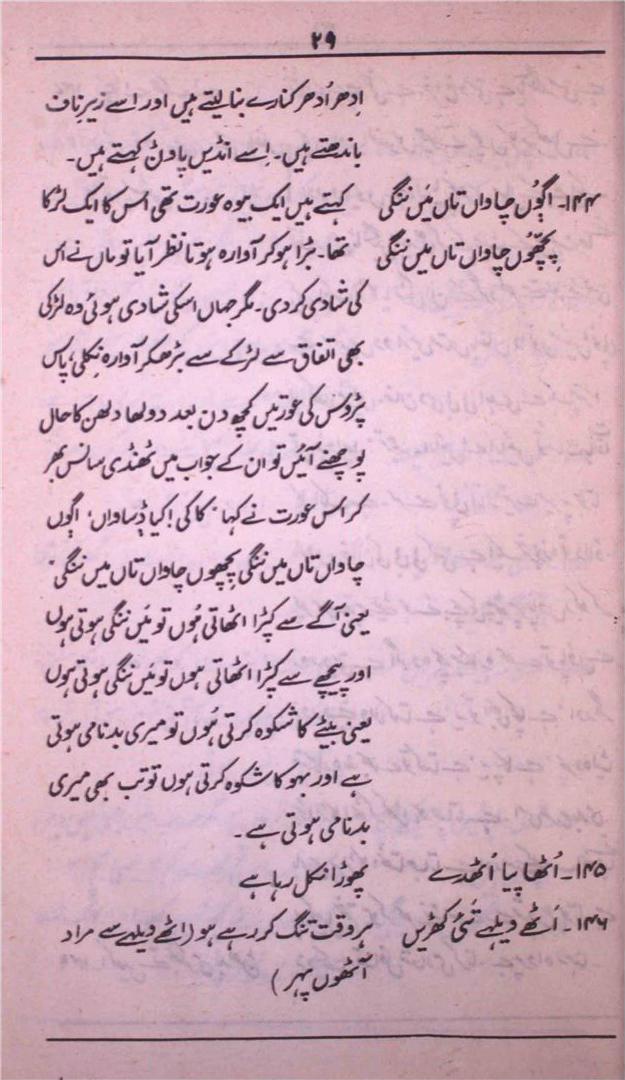 ۲۹
اِدھر اُدھر کنارے بنا لیتے ہیں اور اسے زیرِ ناف
باندھتے ہیں۔ اِسے انڈیس پاون کہتے ہیں۔
۱۴۴۔ اگوُں چاواں تاں مَیں ننگی کہتے ہیں ایک بیوہ عورت تھی اس کا ایک لڑکا
پچھّوں چاواں تاں میں ننگی تھا۔ بڑا ہو کر آوارہ ہوتا نظر آیا تو ماں نے اس
کی شادی کر دی۔ مگر جہاں اسکی شادی ہوئی وہ لڑکی
بھی اتفاق سے لڑکے سے بڑھکر آوارہ نکلی، پاس
پڑوس کی عورتیں کچھ دن بعد دولھا دلھن کا حال
پوچھنے آئیں تو ان کے جواب میں ٹھنڈی سانس بھر
کر اس عورت نے کہا "کاکی! کیا ڈساواں، اگوں
چاواں تاں میں ننگی پچھوں چاواں تاں میں ننگی"
یعنی آگے سے کپڑا اٹھاتی ہُوں تو مَیں ننگی ہوتی ہوں
اور پیچھے سے کپڑا اٹھاتی ہوں تو مَیں ننگی ہوتی ہوں
یعنی بیٹے کا شکوہ کرتی ہُوں تو میری بدنامی ہوتی
ہے اور بہو کا شکوہ کرتی ہوں تو تب بھی میری
بدنامی ہوتی ہے۔
۱۴۵۔ اُٹھا پیا اُٹھدے پھوڑا نکل رہا ہے
۱۴۶۔ اَٹھے ویلہے تَئی کھڑیں ہر وقت تنگ کر رہے ہو (اٹھے ویلہے سے مراد
آٹھوں پہر)